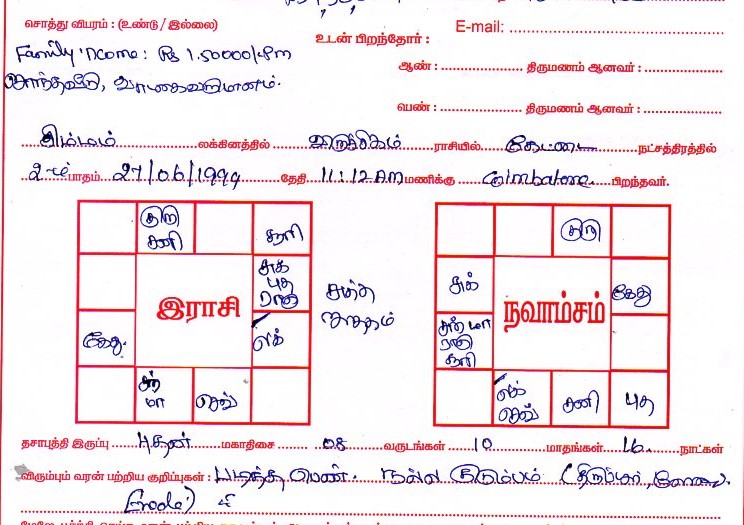 சொத்து விபரம் : (உண்டு / இல்லை)
E-mail:
உடன் பிறந்தோர் :
Family income: Rs 1.50000/-Pm
சொந்தவீடு, வாடகைவருமானம்.
ஆண் : திருமணம் ஆனவர் :
பெண் : திருமணம் ஆனவர் :
சிம்மம் லக்கினத்தில் விருச்சிகம் ராசியில் கேட்டை நட்சத்திரத்தில்
2-ம் பாதம் 27/06/1999 தேதி 11:12 AM மணிக்கு Coimbatore. பிறந்தவர்.
குரு சனி சூரி
சுக் புத ராகு
இராசி
லக்
கேது
சந் மா செவ்
சுத்த ஜாதகம்
குரு
சுக் கேது
நவாம்சம்
சந் மா ராகு சூரி
லக் செவ் சனி புத
தசாபுத்தி இருப்பு புதன் மகாதிசை 08 வருடங்கள் 10 மாதங்கள் 16 நாட்கள்
விரும்பும் வரன் பற்றிய குறிப்புகள் : படித்த பெண். நல்ல குடும்பம் (திருப்பூர், கோவை,
Erode)